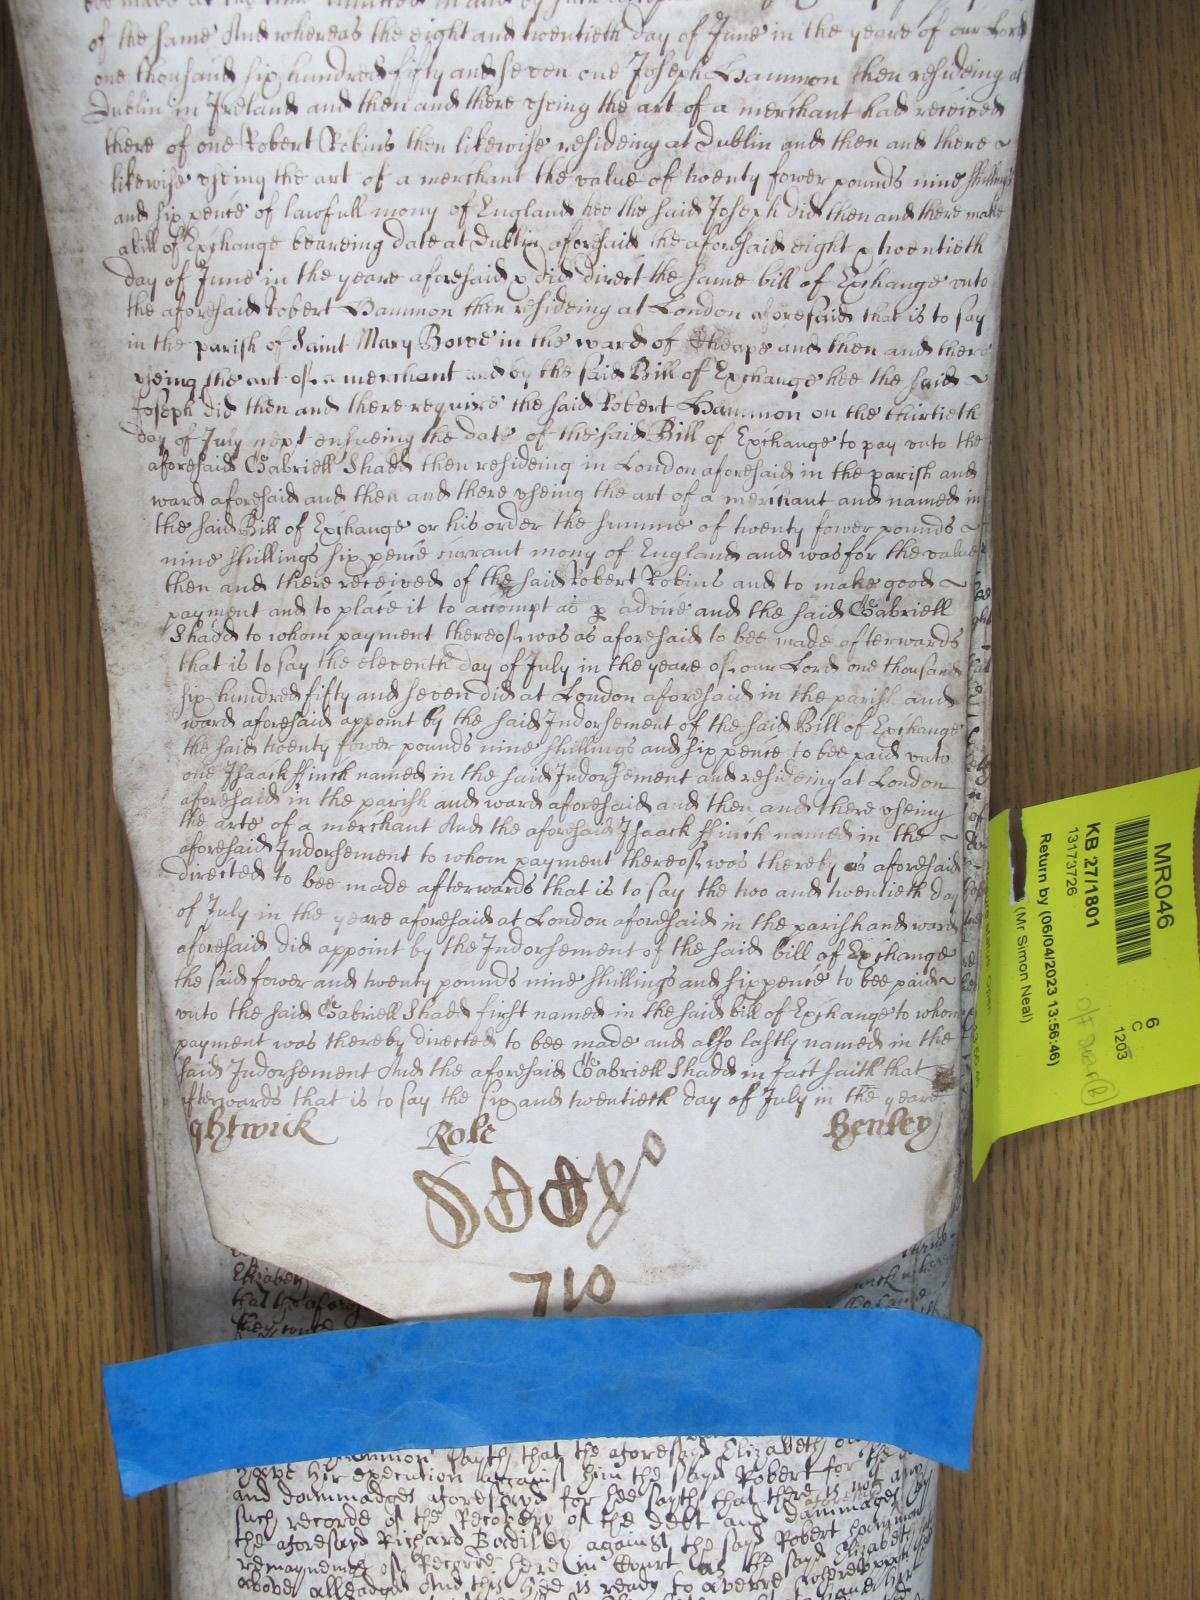 of the same And whereas the eight and twentieth day of June in the yeare of our Lord
one thousand six hundred fifty and seven one Joseph Hammon then resideing at
Dublin in Ireland and then and there vseing the art of a merchant had received
there of one Robert Robins then likewise resideing at Dublin and then and there
likewise vseing the art of a merchant the value of twenty fower pounds nine shillings
and six pence of lawfull mony of England hee the said Joseph did then and there make
a bill of Exchange beareing date at Dublin aforesaid the aforesaid eight & twentieth
day of June in the yeare aforesaid & did direct the same bill of Exchange vnto
the aforesaid Robert Hammon then resideing at London aforesaid that is to say
in the parish of Saint Mary Bowe in the ward of Cheape and then and there
vseing the art of a merchant and by the said Bill of Exchange hee the said
Joseph did then and there require the said Robert Hammon on the thirtieth
day of July next ensueing the date of the said Bill of Exchange to pay vnto the
aforesaid Gabriell Shadd then resideing in London aforesaid in the parish and
ward aforesaid and then and there vseing the art of a merchant and named in
the said Bill of Exchange or his order the summe of twenty fower pounds
nine shillings six pence currant mony of England and was for the value
then and there received of the said Robert Robins and to make good
payment and to place it to accompt as p advice and the said Gabriell
Shadd to whom payment thereof was as aforesaid to bee made afterwards
that is to say the eleventh day of July in the yeare of our Lord one thousand
six hundred fifty and seven did at London aforesaid in the parish and
ward aforesaid appoint by the said Indorsement of the said Bill of Exchange
the said twenty fower pounds nine shillings and six pence to bee paid vnto
one Isaack ffinch named in the said Indorsement and resideing at London
aforesaid in the parish and ward aforesaid and then and there vseing
the arte of a merchant And the aforesaid Isaack ffinch named in the
aforesaid Indorsement to whom payment thereof was thereby as aforesaid
directed to bee made afterwards that is to say the two and twentieth day
of July in the yeare aforesaid at London aforesaid in the parish and ward
aforesaid did appoint by the Indorsement of the said bill of Exchange
the said fower and twenty pounds nine shillings and six pence to bee paid
vnto the said Gabriell Shadd first named in the said bill of Exchange to whom
payment was thereby directed to bee made and also lastly named in the
said Indorsement And the aforesaid Gabriell Shadd in fact saith that
afterwards that is to say the six and twentieth day of July in the yeare
ghtwick Role Henley
710
Elizabeth
that the afores
sayth that the aforesayd Elizabeth
have her execution against him the sayd Robert for the
and dammadges aforesayd for hee sayth that there is not any
such recorde of the Recovery of the debt and dammages
the aforesayd Richard Badiley against the sayd Robert Hammon
remayneinge of Recorde here in Court as the sayd Elizabeth
above alleadged And this hee is ready to averre
MR046
KB 27/1801
13173726
Return by (06/04/2023 13:56:46)
(Mr Simon Neal)
6
C
1203